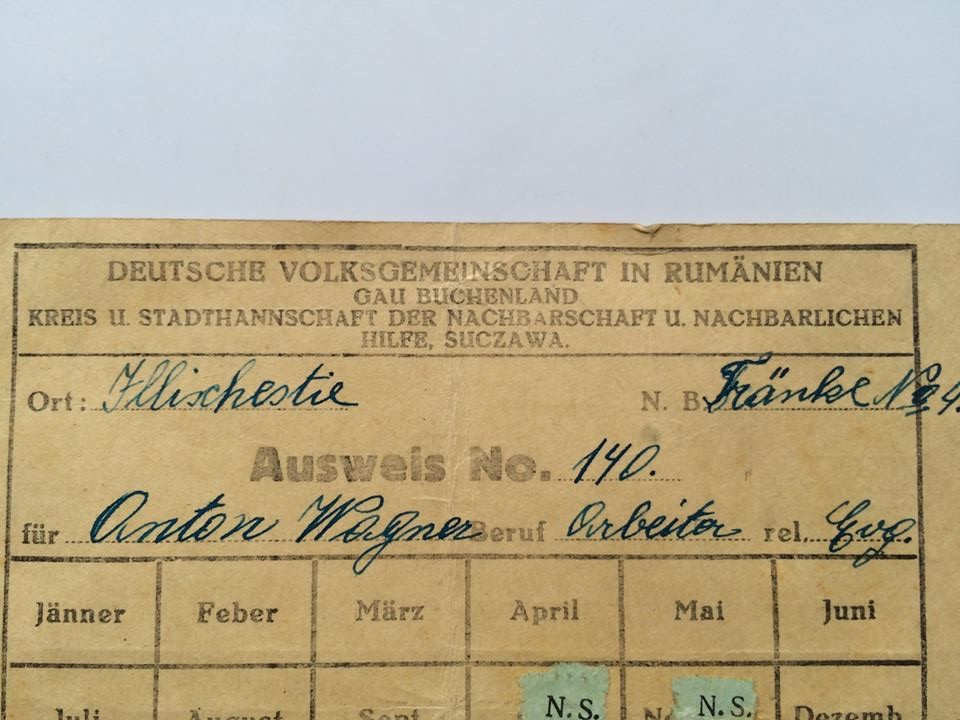 DEUTSCHE VOLKSGEMEINSCHAFT IN RUMÄNIEN
GAU BUCHENLAND
KREIS U. STADTHANNSCHAFT DER NACHBARSCHAFT U. NACHBARLICHEN
HILFE, SUCZAWA.
Ort: Illischestie N. B. Fränkel No 4.
Ausweis No. 140.
für Anton Wagner Beruf Arbeiter rel. Evg.
Jänner Feber März April Mai Juni
Juli August Sept. N.S. N.S. Dezemb.